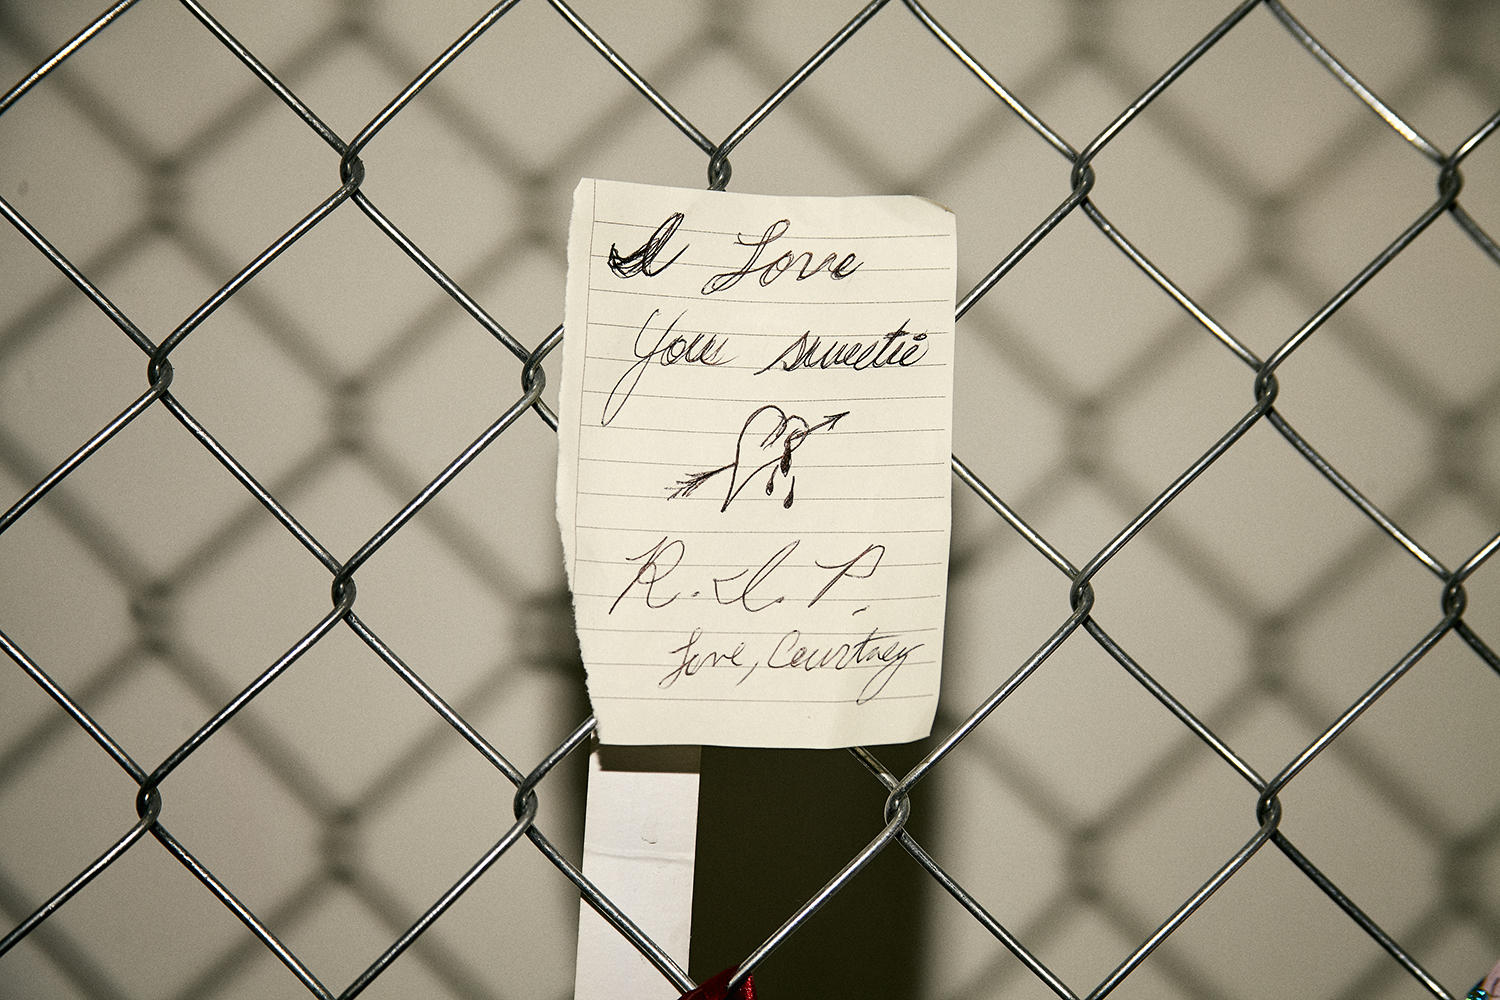 I Love
You sweetie
R.I.P.
Love, Courtney